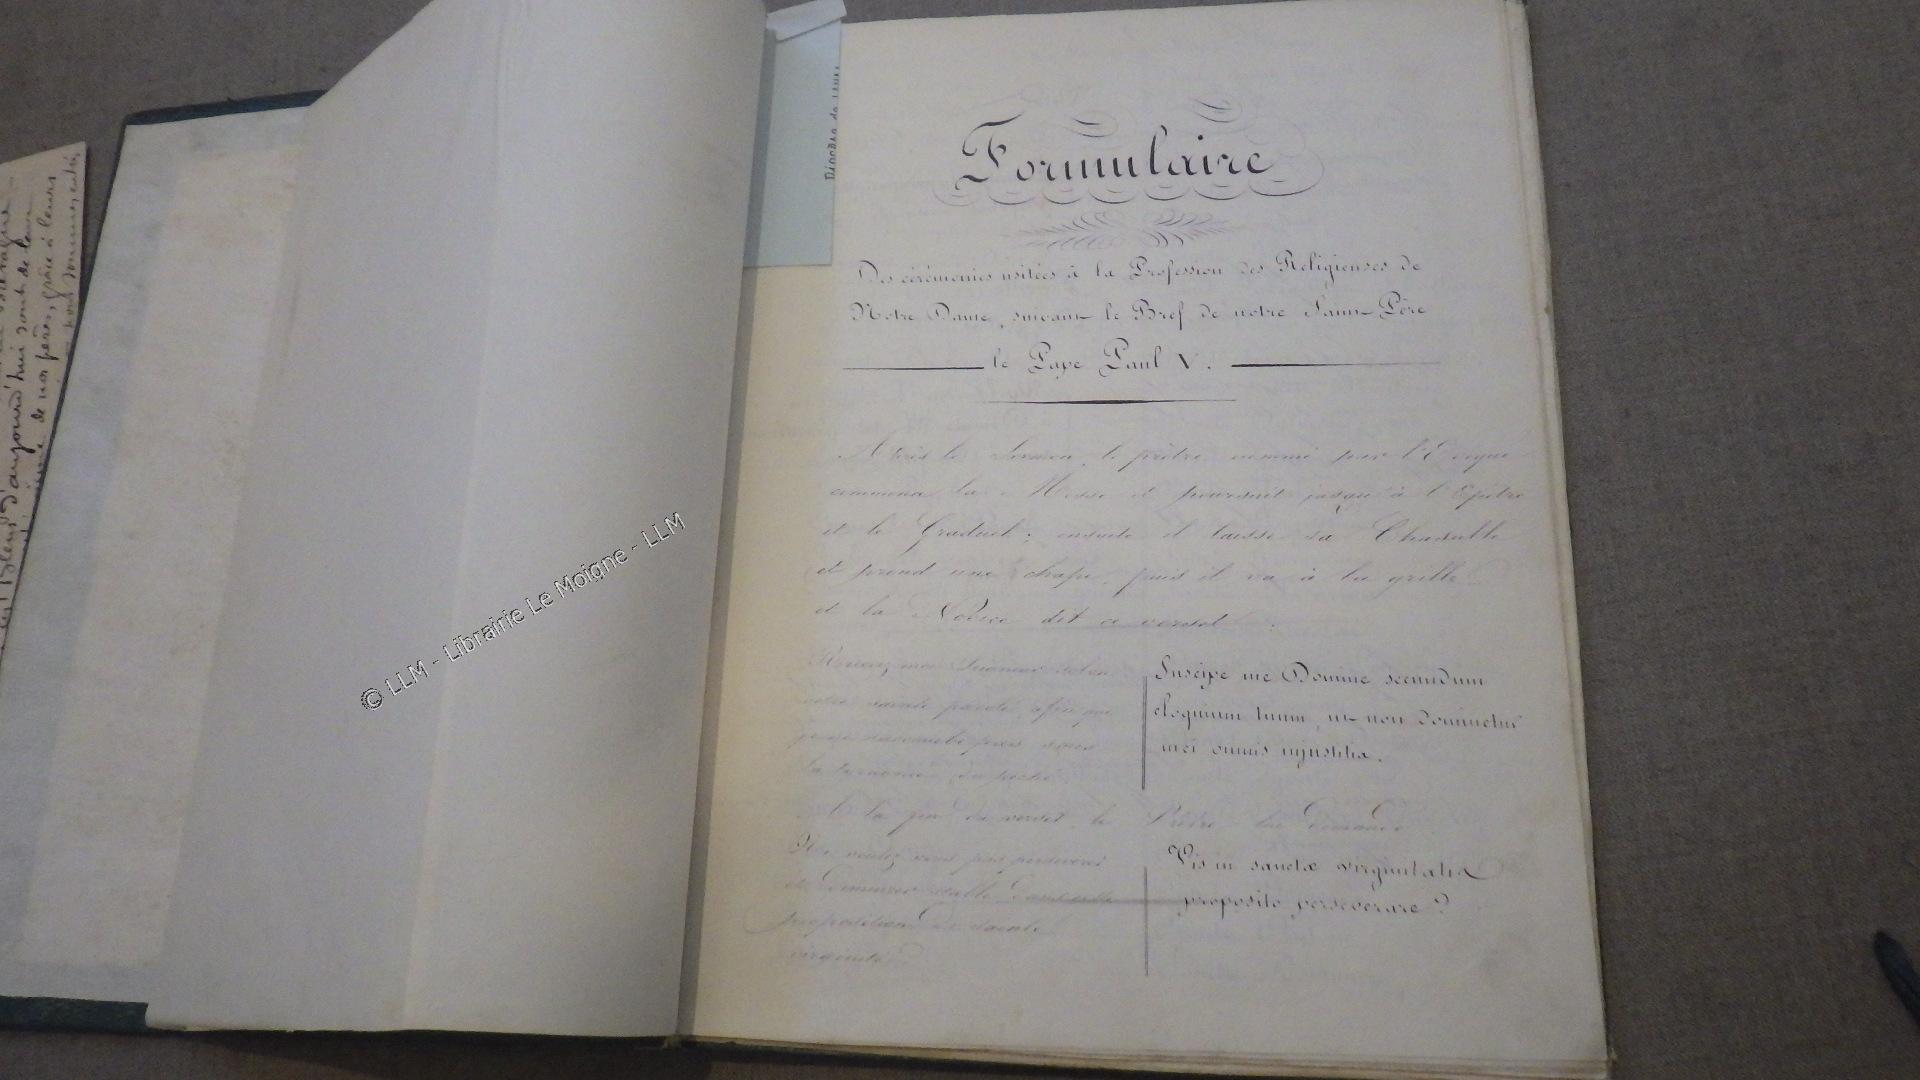 d'aujourd'hui sont de leur
de nos pères, grâce à leurs
Diocèse de
© LLM - Librairie Le Moigne - LLM
Formulaire
Des cérémonies usitées à la Profession des Religieuses de
Notre Dame, suivant le Bref de notre Saint Père
le Pape Paul V.
Après le Sermon, le prêtre nommé par l'Evêque
commence la Messe et poursuit jusqu'à l'Epitre
et le Graduel ; ensuite il laisse sa Chasuble
et prend une chape, puis il va à la grille
et la Novice dit ce verset :
Recevez moi Seigneur selon
votre sainte parole, afin que
je ne succombe pas sous
la tyrannie du péché
Suscipe me Domine secundum
eloquium tuum, ut non dominetur
mei omnis injustitia.
A la fin du verset le Prêtre lui demande
Ne voulez vous pas perseverer
et demeurer stable dans cette
proposition de sainte
virginité
Vis in sanctæ virginitatis
proposito perseverare ?